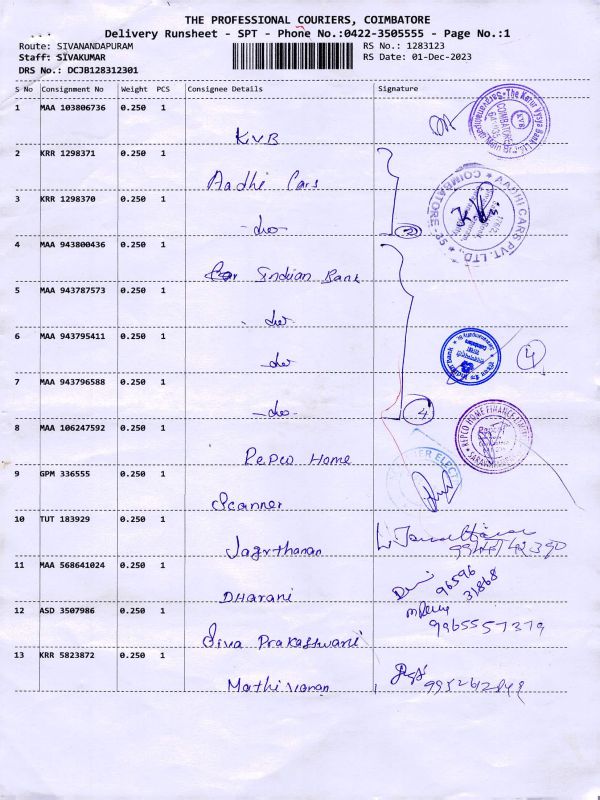 THE PROFESSIONAL COURIERS, COIMBATORE
Delivery Runsheet - SPT - Phone No.:0422-3505555 - Page No.:1
Route: SIVANANDAPURAM RS No.: 1283123
Staff: SIVAKUMAR RS Date: 01-Dec-2023
DRS No.: DCJB128312301
S No Consignment No Weight PCS Consignee Details Signature
1 MAA 103806736 0.250 1
KVB
2 KRR 1298371 0.250 1
Aadhi Cars
3 KRR 1298370 0.250 1
-do- 2
4 MAA 943800436 0.250 1
Indian Bank
5 MAA 943787573 0.250 1
-do-
6 MAA 943795411 0.250 1
-do- 4
7 MAA 943796588 0.250 1
-do- 4
8 MAA 106247592 0.250 1
REPCO HOME FINANCE
Repco Home
9 GPM 336555 0.250 1
Scanner
10 TUT 183929 0.250 1
Jagrthanan
11 MAA 568641024 0.250 1
Dharani 96596
31868
12 ASD 3507986 0.250 1
9965557379
Siva Prakashwani
13 KRR 5823872 0.250 1
Mathivanan